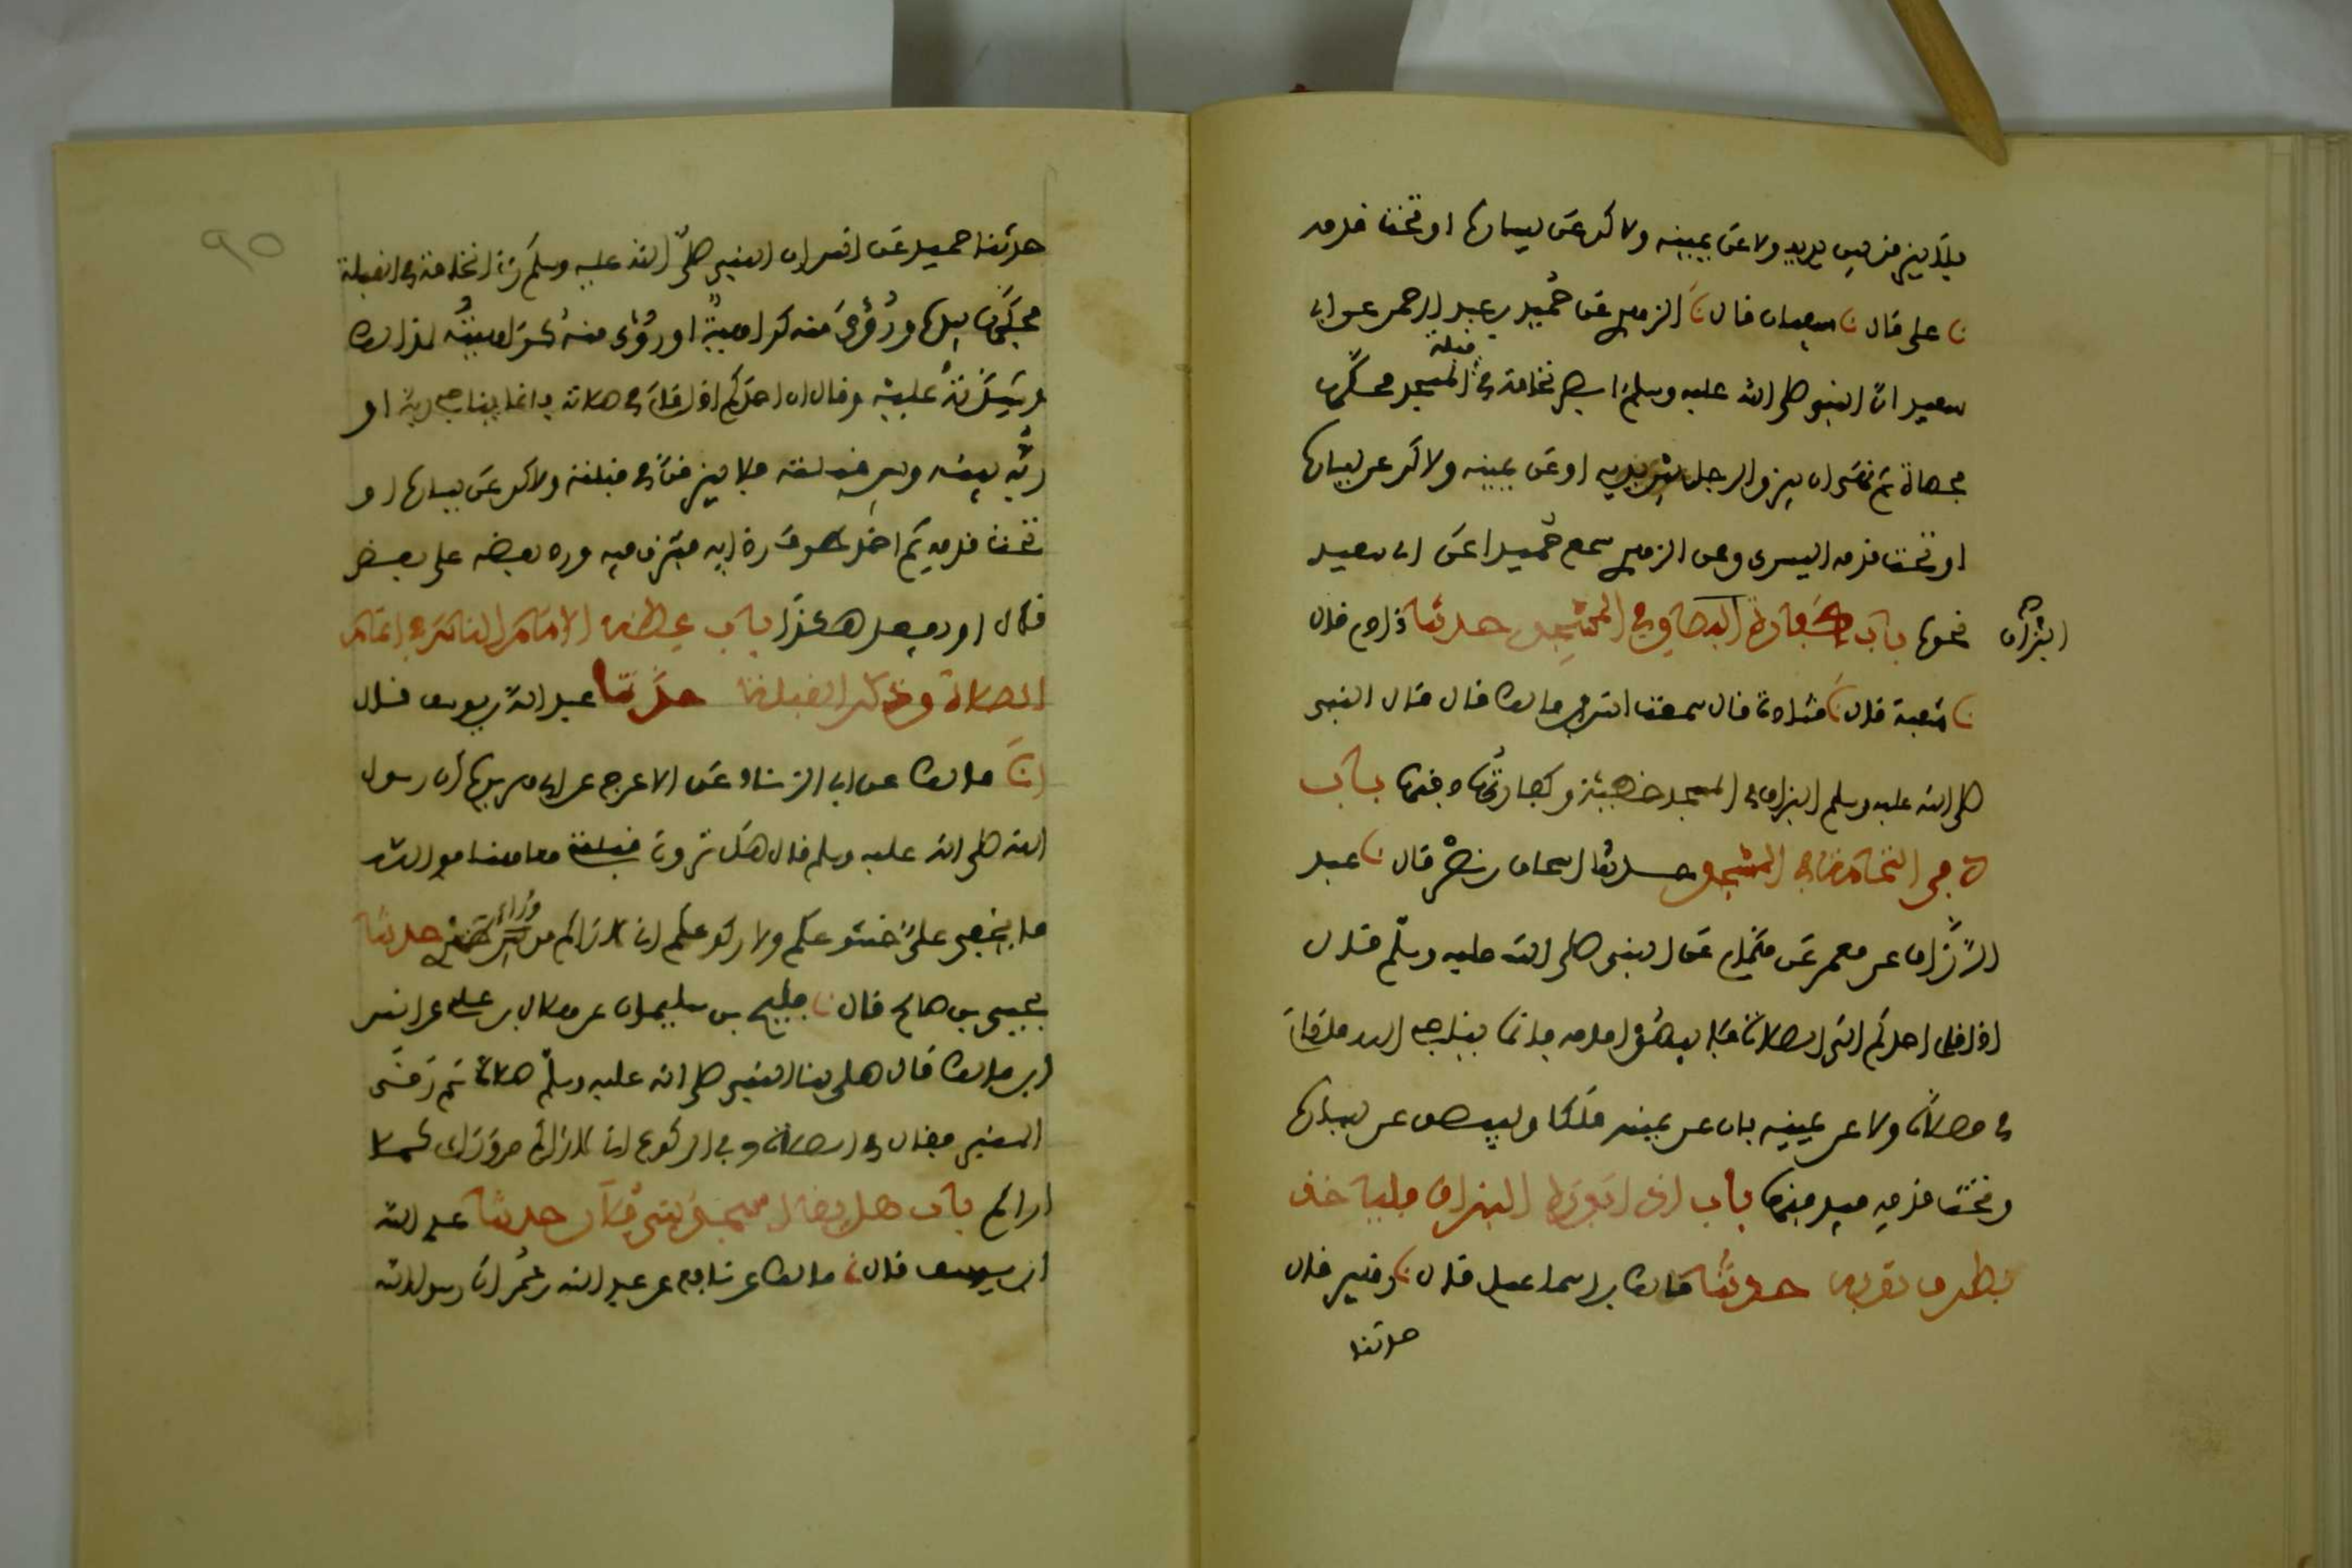 فلا يبزقن بين يديه ولا عن يمينه ولاكن عن يساره او تحت قدمه
نا علي قال نا سفيان قال نا الزهري عن حُميد بن عبد الرحمن عن ابي
سعيد انّ النبي صلى الله عليه وسلم ابصر نخامة في قبلة المسجد فحكّها
بحصاة ثم نهى ان يبزق الرجل بين يديه او عن يمينه ولاكن عن يساره
او تحت قدمه اليسرى وعن الزهري سمع حُميدا عن ابي سعيد
نحوه باب كفارة البصاق في المسجد حدثنا ءادم قال
البزاق
نا شعبة قال نا قتادة قال سمعت انس بن مالك قال قال النبي
صلى الله عليه وسلم البزاق في المسجد خطيئة وكفارتُها دفنها باب
دفن النخامة في المسجد حدثنا اسحاق بن نصر قال نا عبد
الرّزّاق عن معمر عن همّام عن النبي صلى الله عليه وسلّم قال
اذا قام احدكم الى الصلاة فلا يبصق امامه فانما يناجي الله ما دام
في مصلاه ولا عن يمينه فان عن يمينه ملكا وليبصق عن يساره
او تحت قدمه فيدفنها باب اذا بدره البزاق فلياخذ
بطرف ثوبه حدثنا مالك بن اسماعيل قال نا زهير قال
حدثنا
90
حدثنا حميد عن انس ان النبي صلّى الله عليه وسلم رءا نخامة في القبلة
فحكّها بيده ورُؤي منه كراهيةٌ او رُؤي منه كراهيتُه لذالك
وشِدّتُهُ عليه وقال ان احدكم اذا قام في صلاته فانما يناجي ربه او
ربُّه بينه وبين قبلته فلا يبزقنّ في قبلته ولاكن عن يساره او
تحت قدمه ثم اخذ طرف ردايه فبزق فيه ورد بعضه على بعض
فقال او يفعل هكذا باب عظة الامام الناس في اتمام
الصلاة وذكر القبلة حدّثنا عبد الله بن يوسف قال
انا مالك عن ابي الزناد عن الاعرج عن ابي هريرة أن رسول
الله صلى الله عليه وسلم قال هل ترون قبلتي هاهنا فو الله
ما يخفى عليّ خشوعكم ولا ركوعكم اني لاراكم من وراء ظهري حدثنا
يحيى بن صالح قال نا فليح بن سليمان عن هلال بن علي عن انس
ابن مالك قال صلى بنا النبي صلى الله عليه وسلّم صلاة ثم رقى
المنبر فقال في الصلاة وفي الركوع اني لاراكم من وراي كما
اراكم باب هل يقال مسجد بني فلان حدثنا عبد الله
ابن يوسف قال نا مالك عن نافع عن عبد الله بن عمُر ان رسول الله